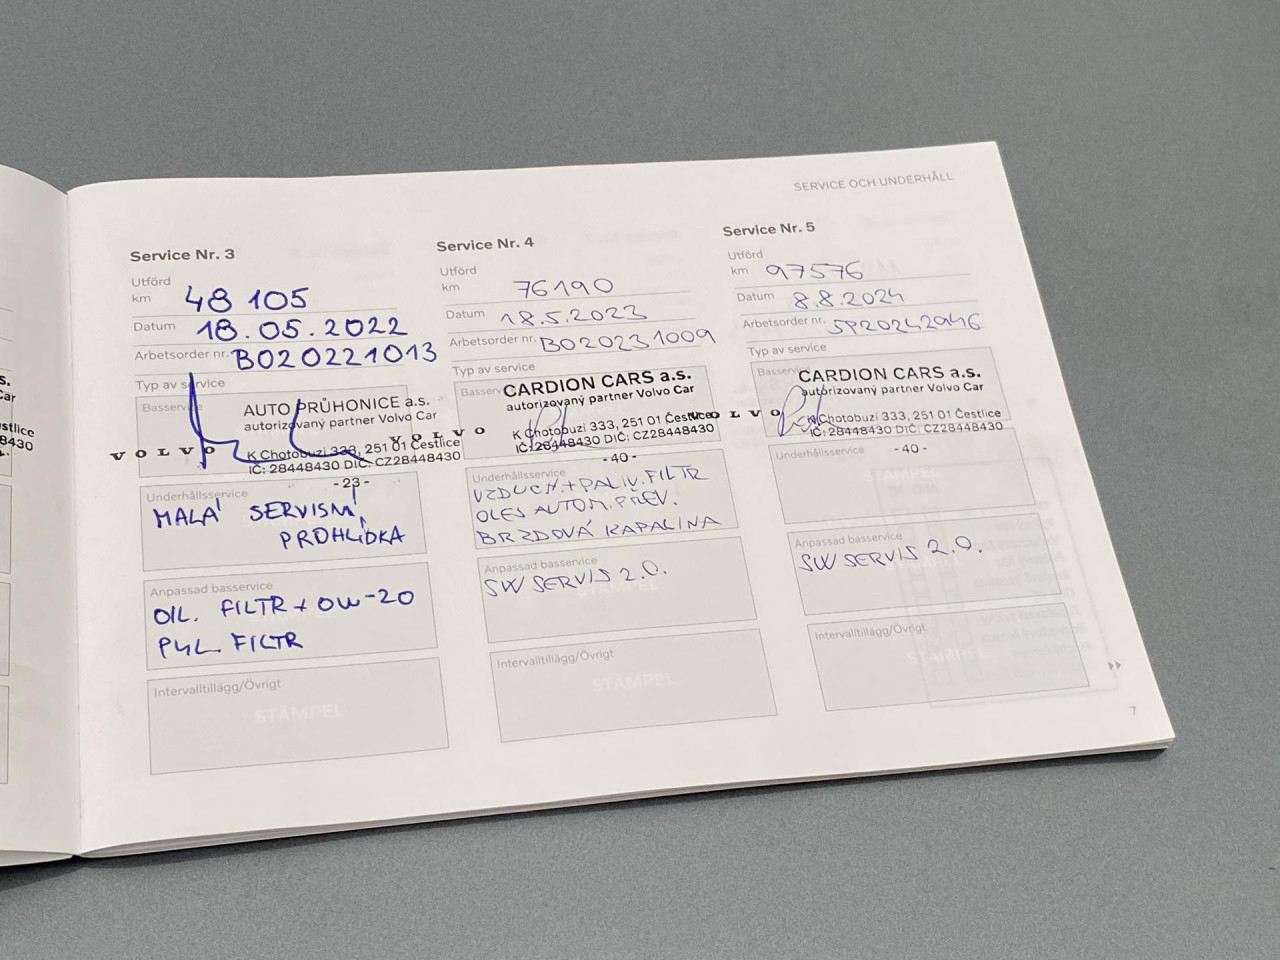 s.
Car
stlice
8430
SERVICE OCH UNDERHÅLL
Service Nr. 3
Utförd
km 48 105
Datum 18.05.2022
Arbetsorder nr. BO20221013
Typ av service
Basservice
AUTO PRŮHONICE a.s.
autorizovaný partner Volvo Car
VOLVO
K Chotobuzi 333, 251 01 Čestlice
IČ: 28448430 DIČ: CZ28448430
- 23 -
Underhållsservice
MALÁ SERVISNÍ
PROHLÍDKA
Anpassad basservice
OIL. FILTR + OW-20
PYL. FILTR
Intervalltillägg/Övrigt
STÄMPEL
Service Nr. 4
Utförd
km 76190
Datum 18.5.2023
Arbetsorder nr. BO20231009
Typ av service
Basserv
CARDION CARS a.s.
autorizovaný partner Volvo Car
VOLVO
K Chotobuzi 333, 251 01 Čestlice
IČ: 28448430 DIČ: CZ28448430
- 40 -
Underhållsservice
VZDUCH.+PALIV.FILTR
OLEJ AUTOM.PŘEV.
BRZDOVÁ KAPALINA
Anpassad basservice
SW SERVIS 2.0.
Intervalltillägg/Övrigt
STÄMPEL
Service Nr. 5
Utförd
km 97576
Datum 8.8.2024
Arbetsorder nr. SP20242946
Typ av service
Basservice
CARDION CARS a.s.
autorizovaný partner Volvo Car
VOLVO
K Chotobuzi 333, 251 01 Čestlice
IČ: 28448430 DIČ: CZ28448430
- 40 -
Underhållsservice
Anpassad basservice
SW SERVIS 2.0.
Intervalltillägg/Övrigt
STÄMPEL
7